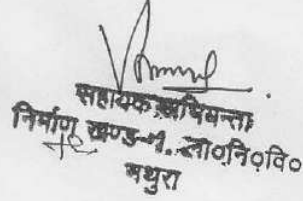 सहायक अभियन्ता
निर्माण खण्ड-1, लो०नि०वि०
मथुरा